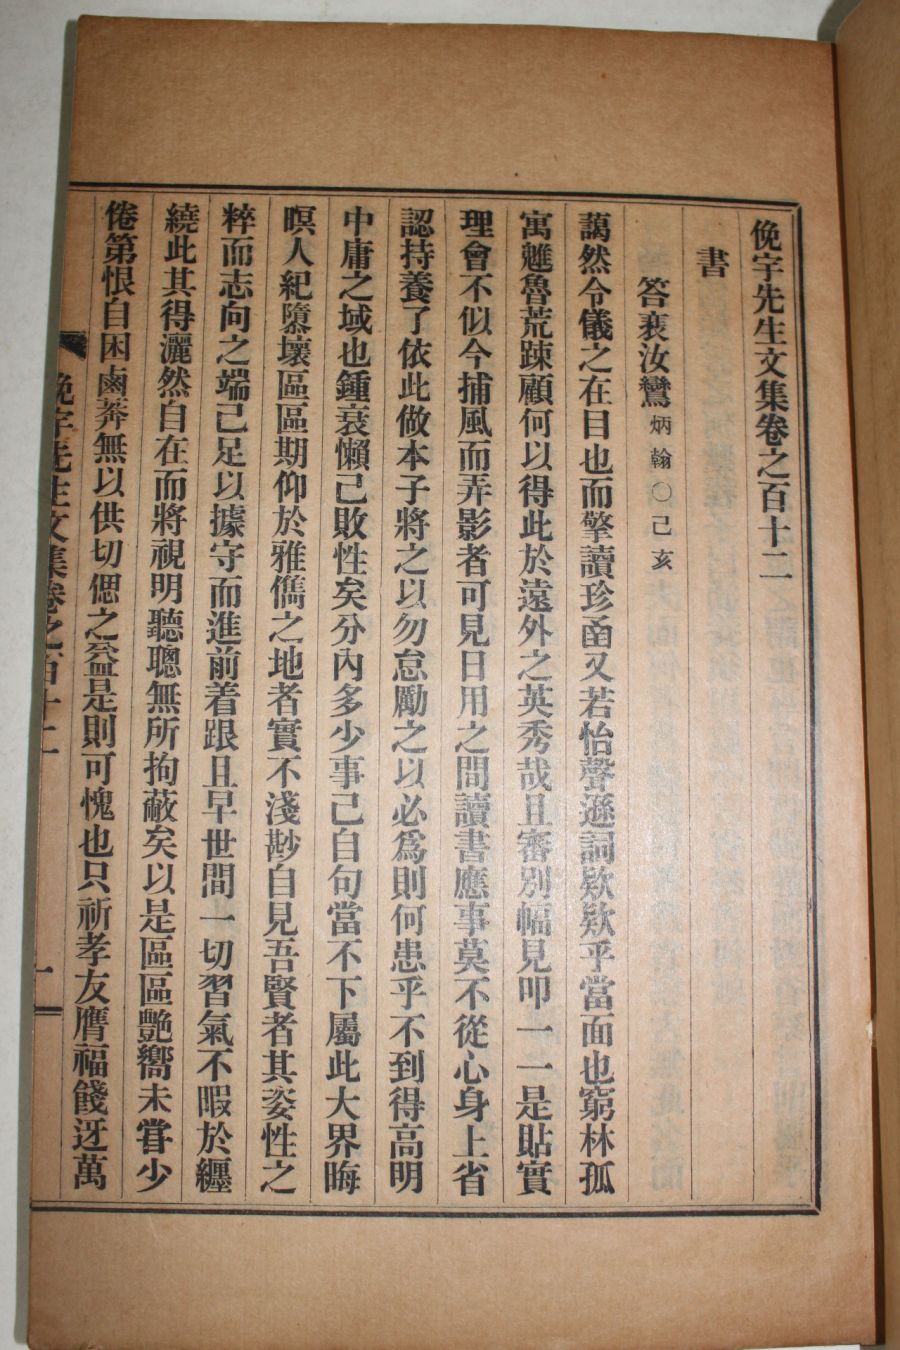 俛宇先生文集卷之百十二
書
答裵汝鸞炳翰○己亥
藹然令儀之在目也而擎讀珍函又若怡聲遜詞欵欵乎當面也窮林孤
寓虺魯荒踈顧何以得此於遠外之英秀哉且審別幅見叩一一是貼實
理會不似今捕風而弄影者可見日用之間讀書應事莫不從心身上省
認持養了依此做本子將之以勿怠勵之以必爲則何患乎不到得高明
中庸之域也鍾衰懶己敗性矣分內多少事己自句當不下屬此大界晦
暝人紀隳壞區區期仰於雅儁之地者實不淺尠自見吾賢者其姿性之
粹而志向之端己足以據守而進前着跟且早世間一切習氣不暇於纏
繞此其得灑然自在而將視明聽聰無所拘蔽矣以是區區艶嚮未甞少
倦第恨自困鹵莽無以供切偲之益是則可愧也只祈孝友膺福餞迓萬
俛宇先生文集卷之百十二
一